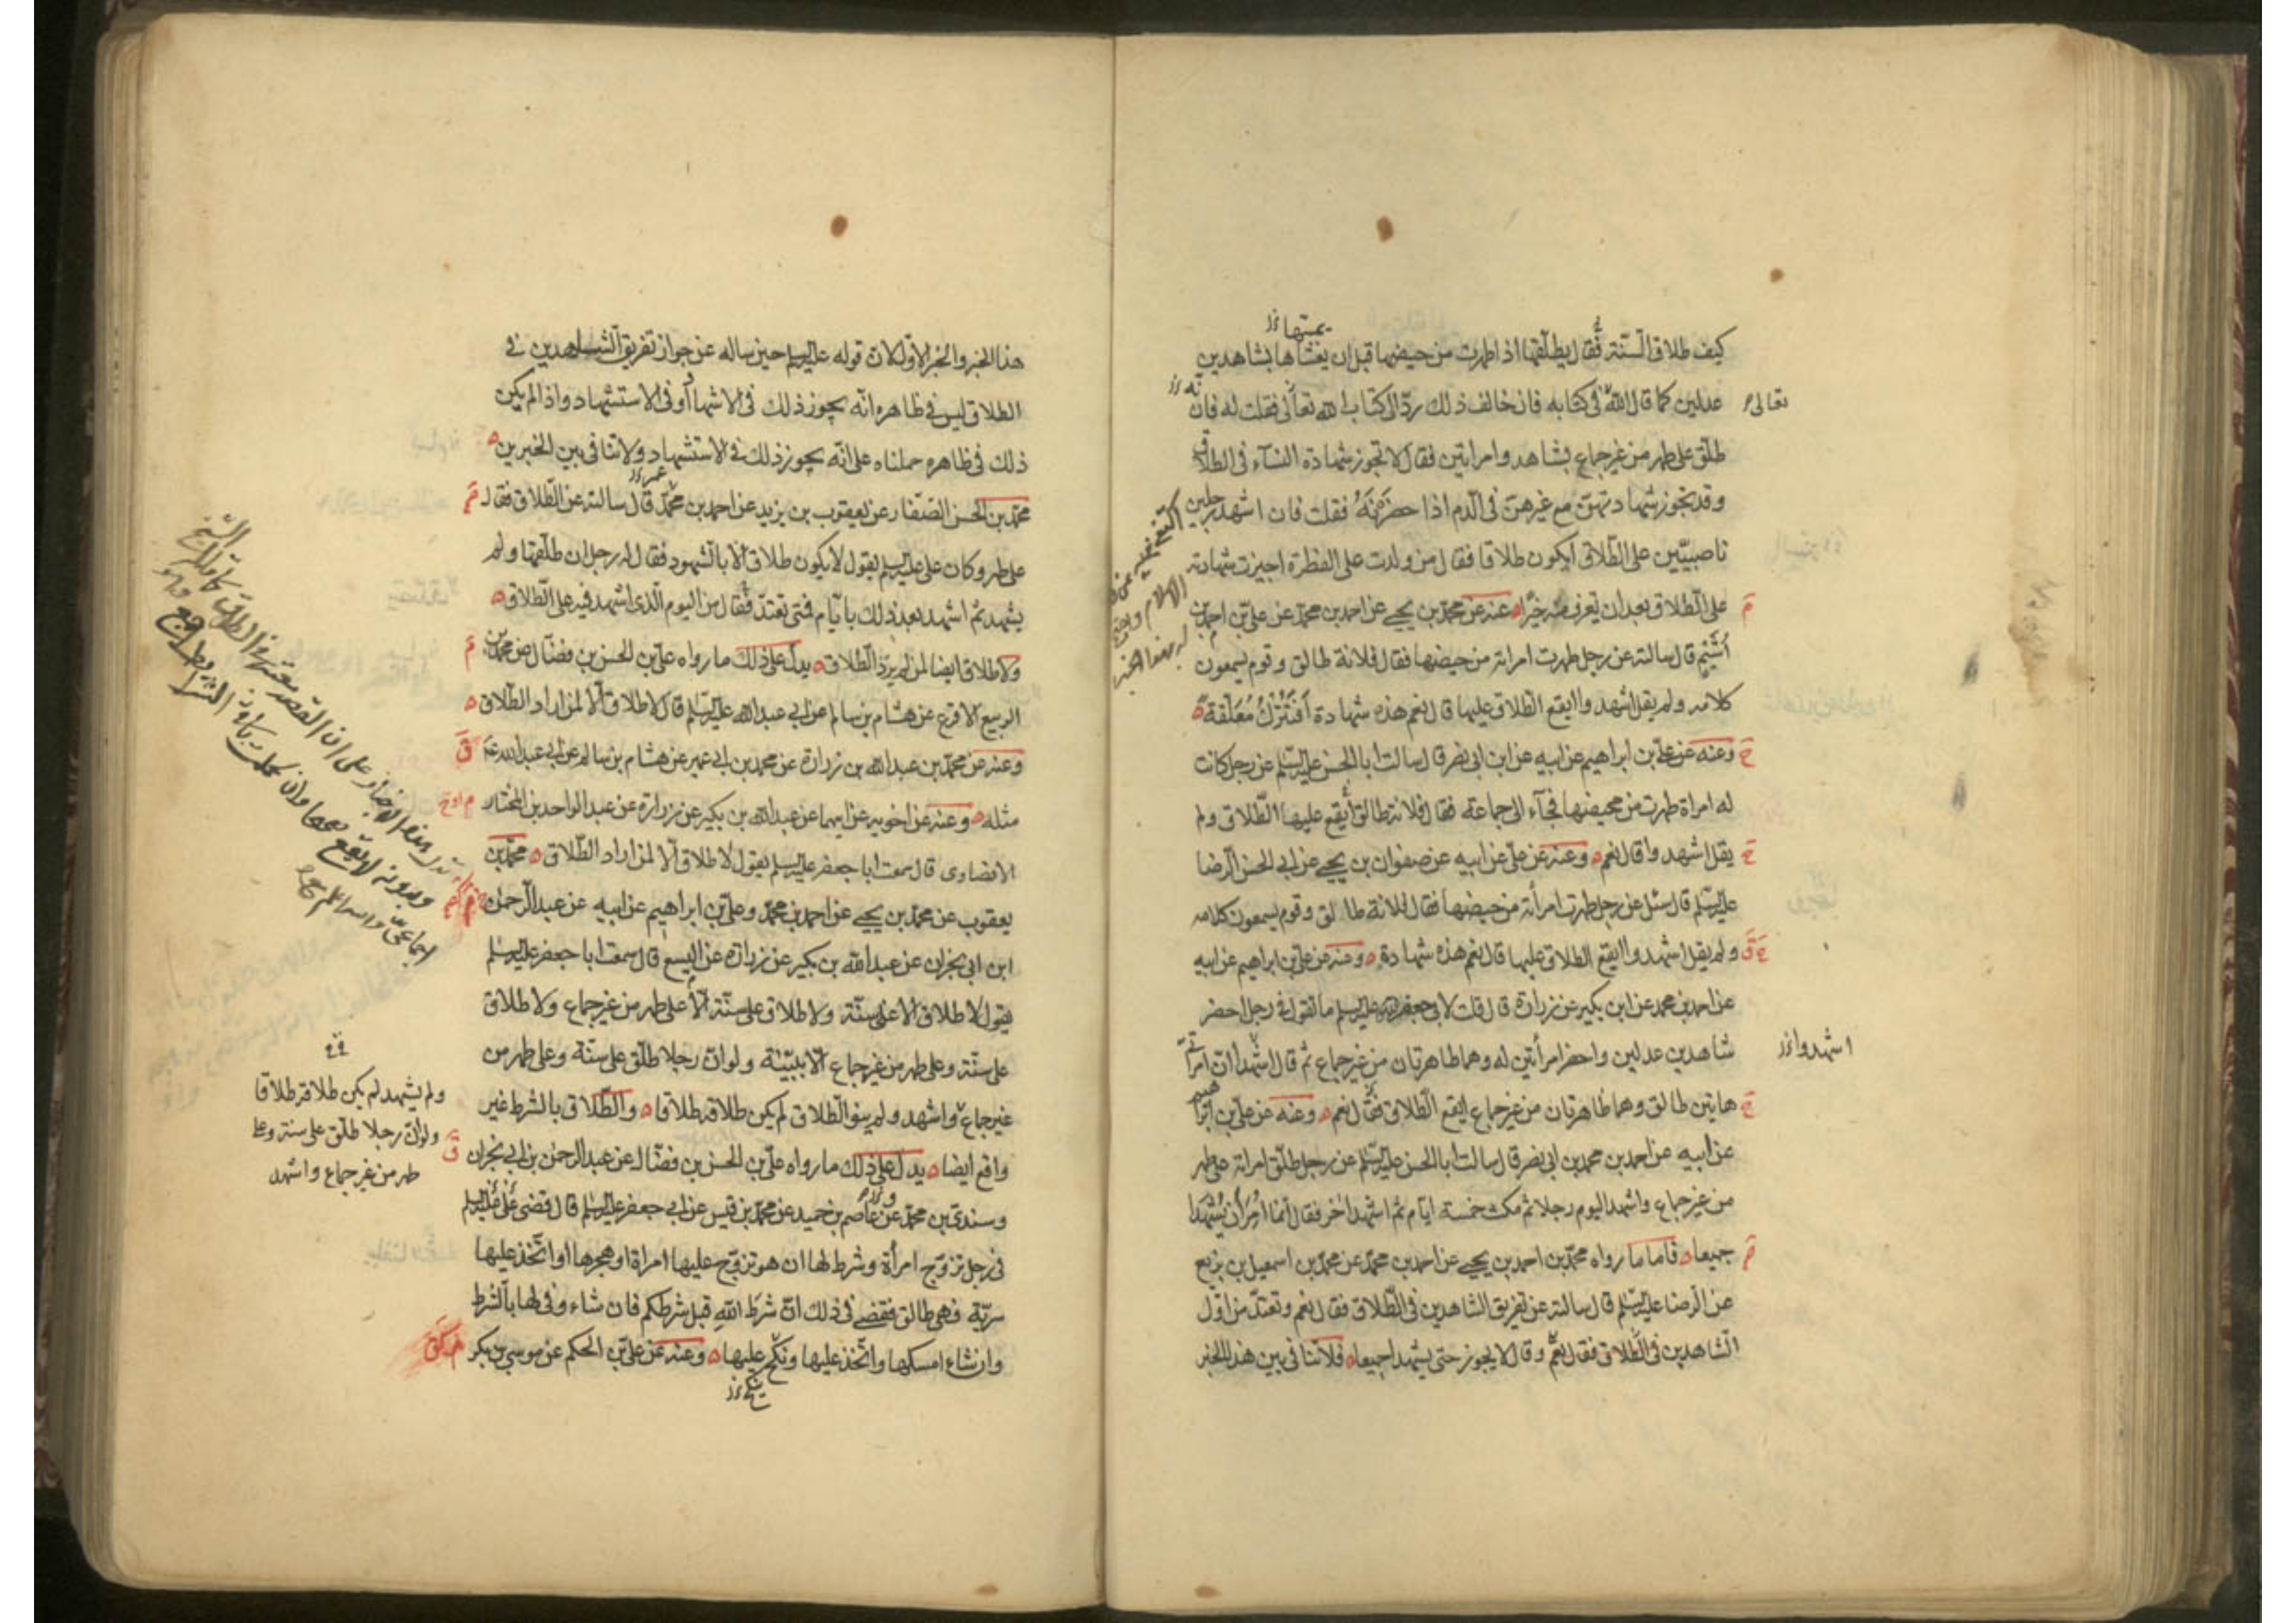 كيف طلاق السنة فقال يطلقها اذا طهرت من حيضها قبل ان يغشاها بشاهدين
يمسها
عدلين كما قال الله في كتابه فان خالف ذلك رد الى كتاب الله تعالى فقلت له فان
تعالى
طلق على طهر من غير جماع بشاهد وامراتين فقال لا تجوز شهادة النساء في الطلاق
وقد تجوز شهادتهن مع غيرهن في الدم اذا حضرته فقلت فان اشهد رجلين
ناصبيين على الطلاق ايكون طلاقا فقال من ولدت على الفطرة اجيزت شهادته
على الطلاق بعد ان تعرف منه خيرا ه عنه عن محمد بن يحيى عن احمد بن محمد عن علي بن احمد بن
اشيم قال سالته عن رجل طهرت امراته من حيضها فقال فلانة طالق وقوم يسمعون
كلامه ولم يقل اشهدوا ايقع الطلاق عليها قال نعم هذه شهادة افتترك معلقة ه
وعنه عن علي بن ابراهيم عن ابيه عن ابن ابي نصر قال سالت ابا الحسن عليه السلم عن رجل كانت
له امراة طهرت من محيضها فجاء الى جماعة فقال فلانة طالق ايقع عليها الطلاق ولم
يقل اشهدوا قال نعم ه وعنه عن علي عن ابيه عن صفوان بن يحيى عن ابي الحسن الرضا
عليه السلم قال سئل عن رجل طهرت امرأته من حيضها فقال فلانة طالق وقوم يسمعون كلامه
ولم يقل اشهدوا ايقع الطلاق عليها قال نعم هذه شهادة ه وعنه عن علي بن ابراهيم عن ابيه
عن احمد بن محمد عن ابن بكير عن زرارة قال قلت لابي جعفر عليه السلم ما تقول في رجل احضر
شاهدين عدلين واحضر امرأتين له وهما طاهرتان من غير جماع ثم قال اشهدا ان امراتي
اشهدوا
هاتين طالق وهما طاهرتان من غير جماع ايقع الطلاق فقال نعم ه وعنه عن علي بن ابراهيم
عن ابيه عن احمد بن محمد بن ابي نصر قال سالت ابا الحسن عليه السلم عن رجل طلق امراته على طهر
من غير جماع واشهد اليوم رجلا ثم مكث خمسة ايام ثم اشهد اخر فقال انما امر أن يشهدا
جميعا ه فاما ما رواه محمد بن احمد بن يحيى عن احمد بن محمد عن محمد بن اسمعيل بن بزيع
عن الرضا عليه السلم قال سالته عن تفريق الشاهدين في الطلاق فقال نعم وتعتد من اول
الشاهدين في الطلاق فقال نعم وقال لا يجوز حتى يشهدا جميعا ه فلا تنافي بين هذا الخبر
هذا الخبر والخبر الاول لان قوله عليه السلم حين ساله عن جواز تفريق الشاهدين في
الطلاق ليس في ظاهره انه يجوز ذلك في الاشهاد أو في الاستشهاد واذا لم يكن
ذلك في ظاهره حملناه على انه يجوز ذلك في الاستشهاد ولا تنافي بين الخبرين ه
محمد بن الحسن الصفار عن يعقوب بن يزيد عن احمد بن محمد قال سالته عن الطلاق فقال
على طهر وكان علي عليه السلم يقول لا يكون طلاق الا بالشهود فقال له رجل ان طلقها ولم
يشهد ثم اشهد بعد ذلك بايام فمتى تعتد فقال من اليوم الذي اشهد فيه على الطلاق ه
ولا طلاق ايضا لمن لم يرد الطلاق ه يدل على ذلك ما رواه علي بن الحسن بن فضال عن محمد بن
الربيع الاقرع عن هشام بن سالم عن ابي عبد الله عليه السلم قال لا طلاق الا لمن اراد الطلاق ه
وعنه عن محمد بن عبد الله بن زرارة عن محمد بن ابي عمير عن هشام بن سالم عن ابي عبد الله ع
مثله ه وعنه عن اخويه عن ابيهما عن عبد الله بن بكير عن زرارة عن عبد الواحد بن المختار
الانصاري قال سمعت ابا جعفر عليه السلم يقول لا طلاق الا لمن اراد الطلاق ه محمد بن
يعقوب عن محمد بن يحيى عن احمد بن محمد وعلي بن ابراهيم عن ابيه عن عبد الرحمن
ابن ابي نجران عن عبد الله بن بكير عن زرارة عن اليسع قال سمعت ابا جعفر عليه السلم
يقول لا طلاق الا على سنة ولا طلاق على سنة الا على طهر من غير جماع ولا طلاق
على سنة وعلى طهر من غير جماع الا ببينة ولو ان رجلا طلق على سنة وعلى طهر من
غير جماع واشهد ولم ينو الطلاق لم يكن طلاقه طلاقا ه والطلاق بالشرط غير
ولم يشهد لم يكن طلاقه طلاقا
ولو ان رجلا طلق على سنة وعلى
طهر من غير جماع واشهد
واقع ايضا ه يدل على ذلك ما رواه علي بن الحسن بن فضال عن عبد الرحمن بن ابي نجران
وسندي بن محمد عن عاصم بن حميد عن محمد بن قيس عن ابي جعفر عليه السلم قال قضى علي عليه السلم
في رجل تزوج امرأة وشرط لها ان هو تزوج عليها امراة او هجرها او اتخذ عليها
سرية فهي طالق فقضى في ذلك ان شرط الله قبل شرطكم فان شاء وفى لها بالشرط
وان شاء امسكها واتخذ عليها ونكح عليها ه وعنه عن علي بن الحكم عن موسى بن بكر